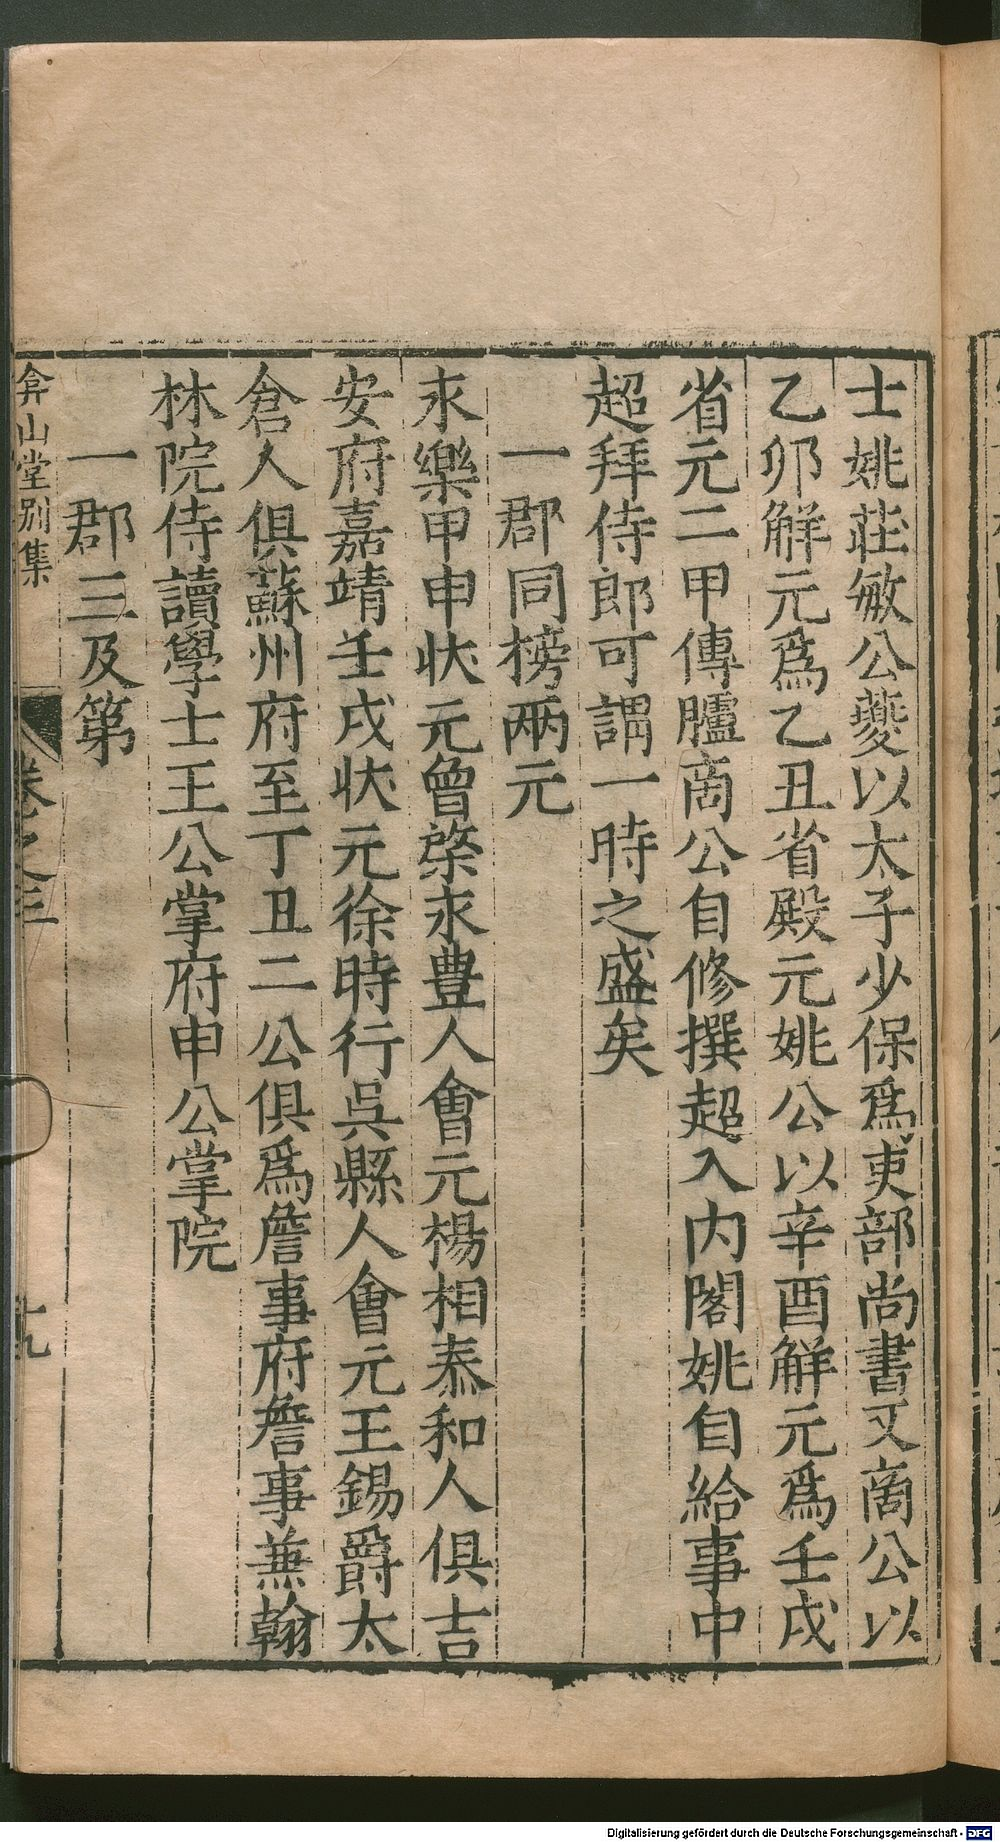 士姚莊敏公夔以太子少保爲吏部尚書又啇公以
乙卯解元爲乙丑省殿元姚公以辛酉解元爲壬戌
省元二甲傳臚啇公自修撰超入内閣姚自給事中
超拜侍郎可謂一時之盛矣
一郡同榜兩元
永樂甲申狀元曾棨永豊人會元楊相泰和人俱吉
安府嘉靖壬戌狀元徐時行吳縣人會元王錫爵太
倉人俱蘇州府至丁丑二公俱爲詹事府詹事兼翰
林院侍讀學士王公掌府申公掌院
一郡三及第
弇山堂别集
卷之三
十九
Digitalisierung gefördert durch die Deutsche Forschungsgemeinschaft - DFG